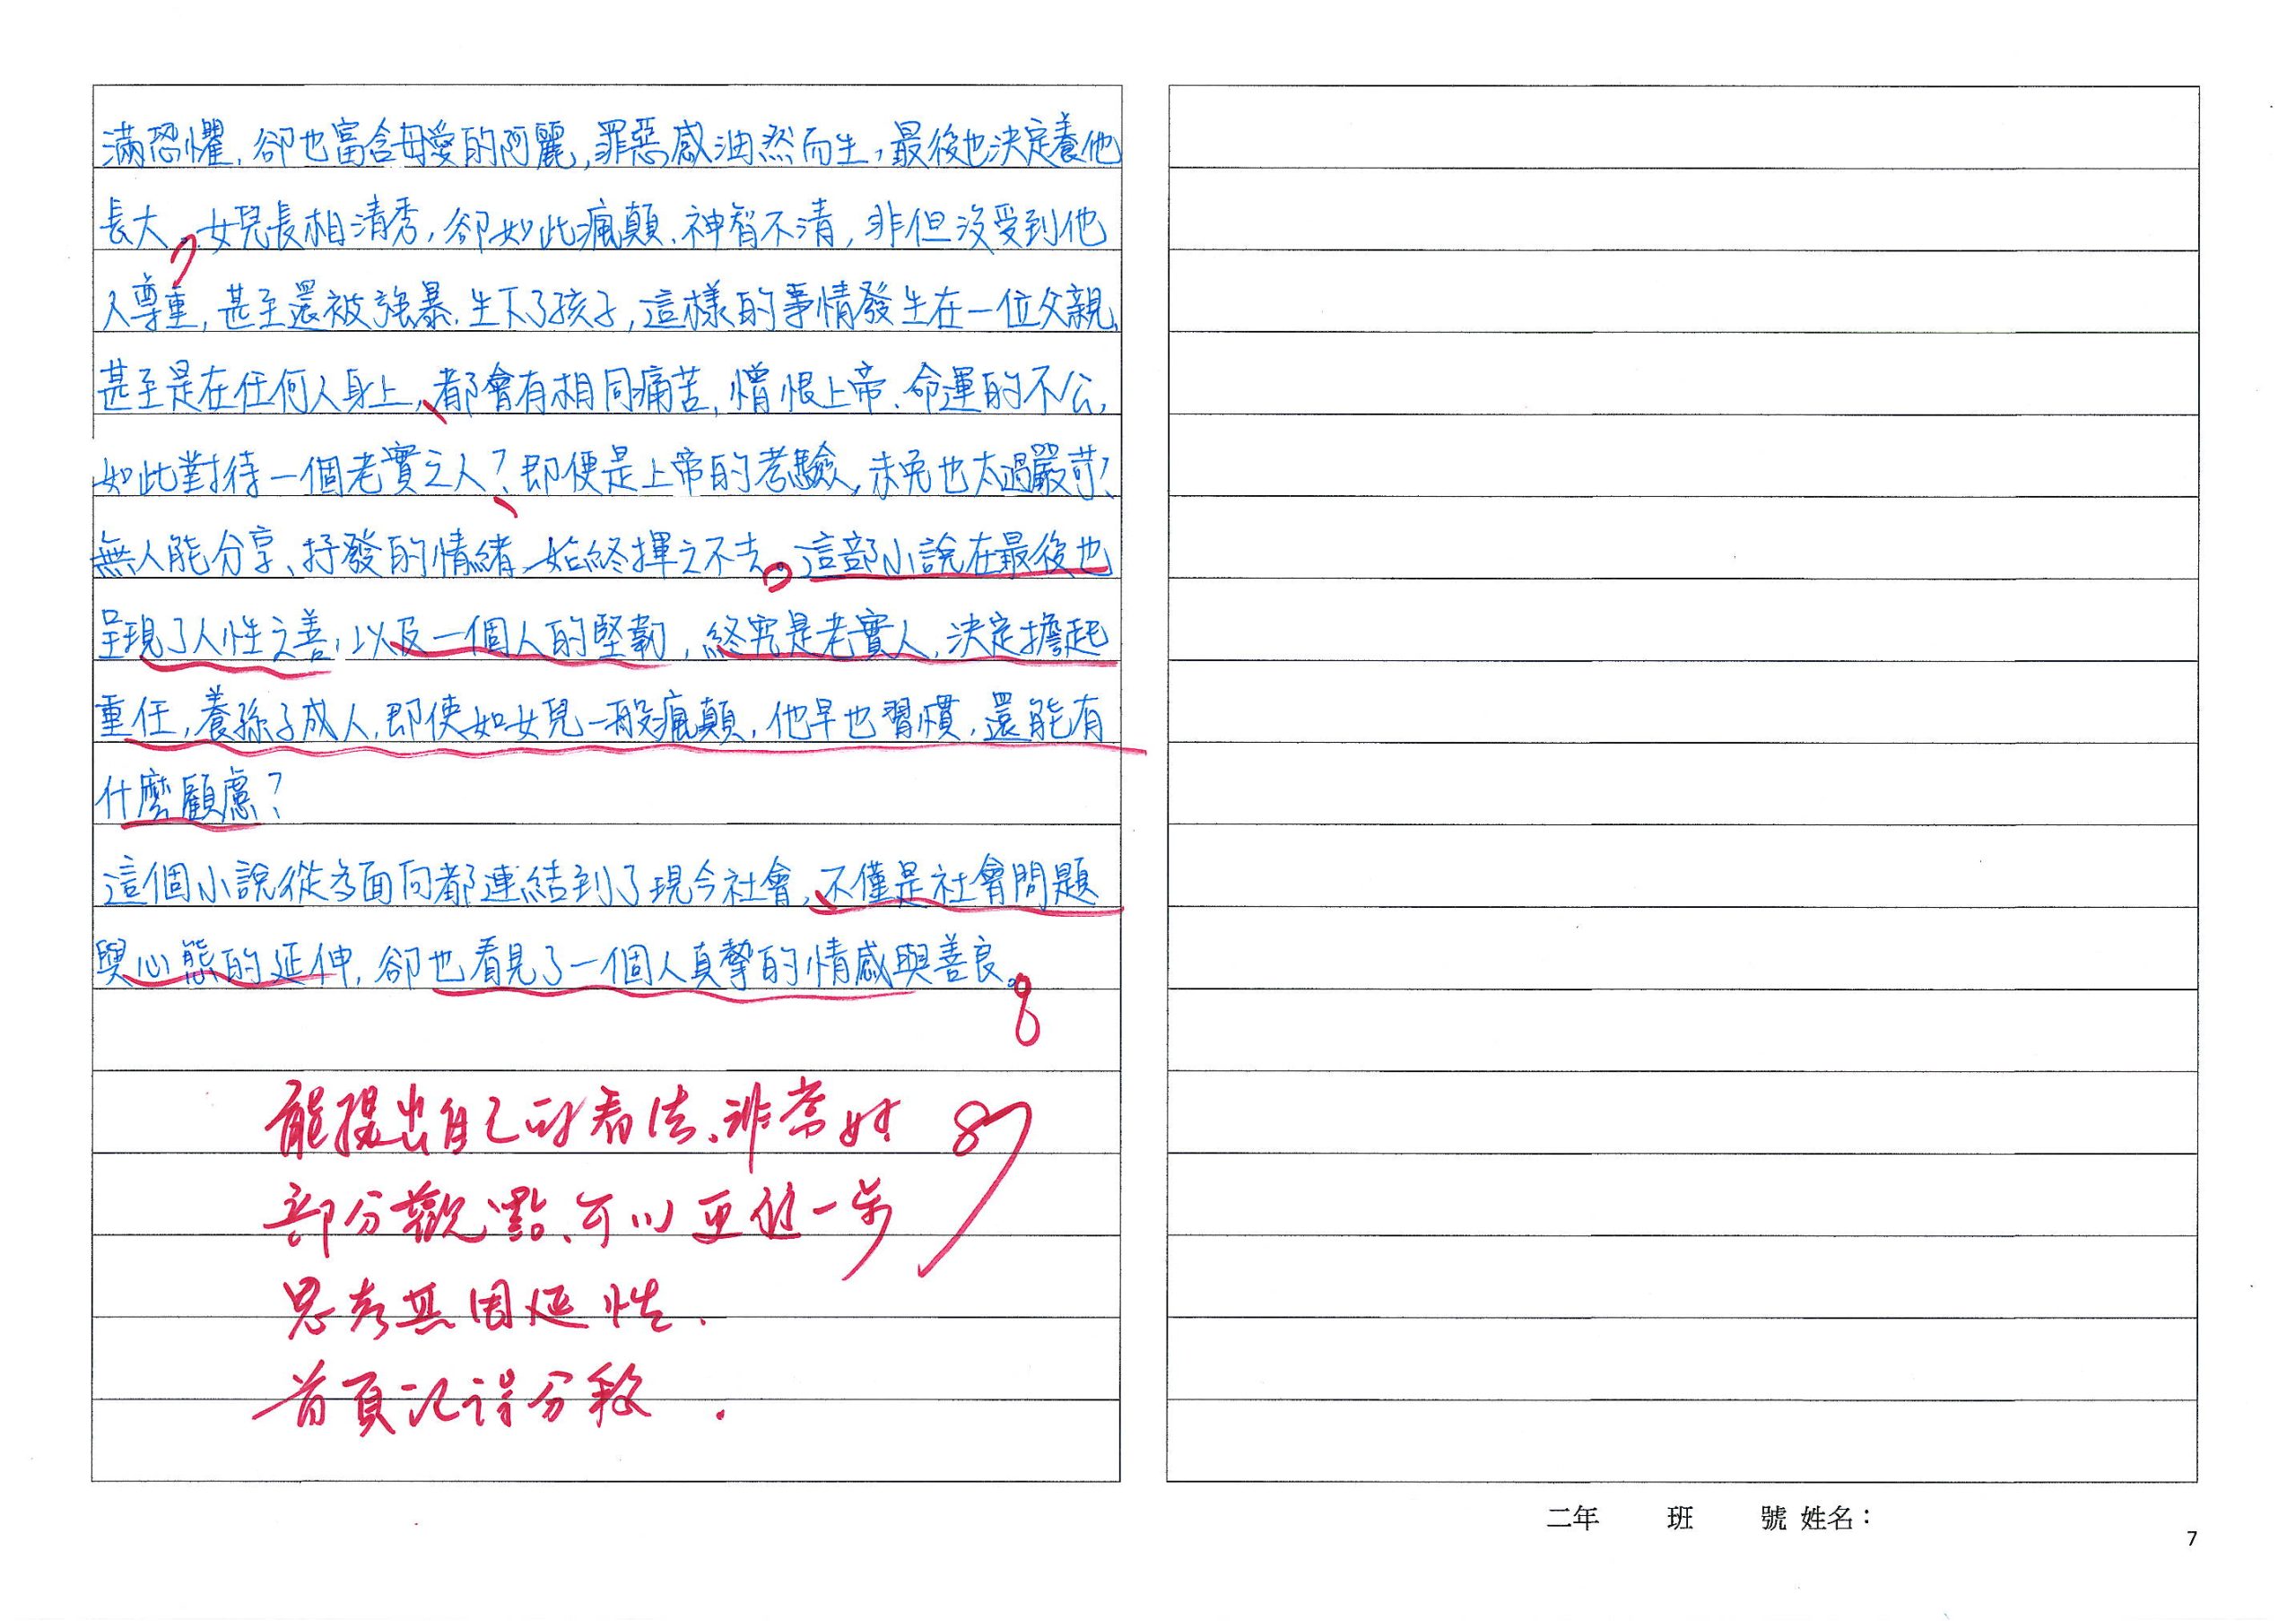 滿恐懼，卻也富含母愛的阿麗，罪惡感油然而生，最後也決定養他
長大。女兒長相清秀，卻如此瘋顛、神智不清，非但沒受到他
人尊重，甚至還被強暴、生下了孩子，這樣的事情發生在一位父親、
甚至是在任何人身上，都會有相同痛苦，憎恨上帝、命運的不公，
如此對待一個老實之人？即便是上帝的考驗，未免也太過嚴苛？
無人能分享、抒發的情緒，始終揮之不去。這部小說在最後也
呈現了人性之善，以及一個人的堅韌，終究是老實人，決定擔起
重任，養孫子成人，即使如女兒一般瘋顛，他早也習慣，還能有
什麼顧慮？
這個小說從多面向都連結到了現今社會，不僅是社會問題
與心態的延伸，卻也看見了一個人真摯的情感與善良。
能提出自己的看法、非常好
部分觀點、可以更進一步
思考其因延性．
首頁記得分段．
87
二年 班 號 姓名：
7